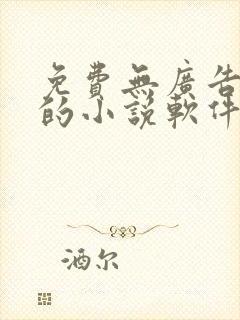 免費無廣告
的小說軟件
酒尔